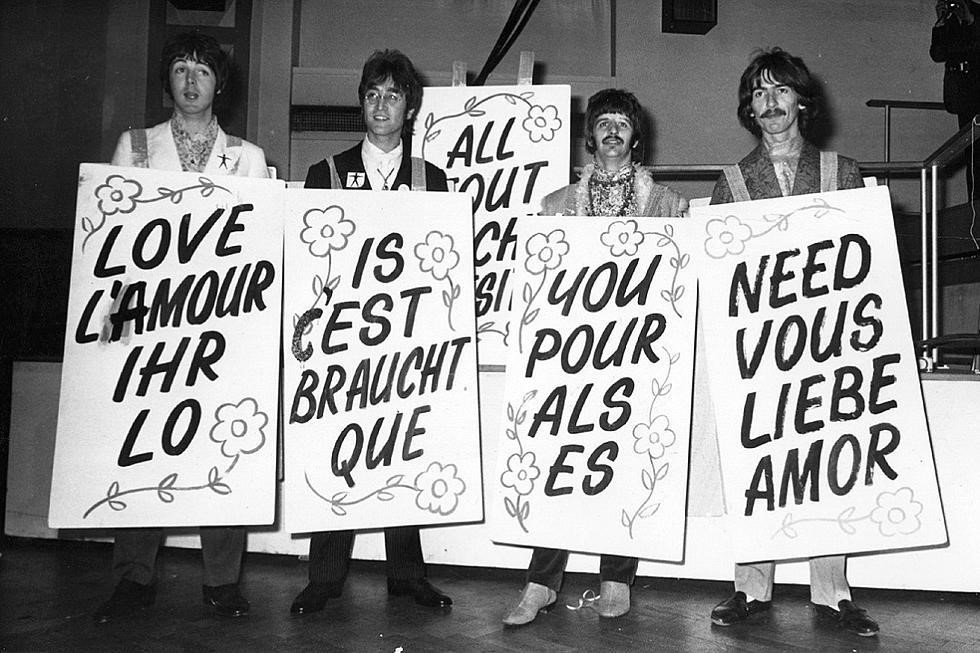 LOVE
L'AMOUR
IHR
LO
IS
C'EST
BRAUCHT
QUE
ALL
TOUT
YOU
POUR
ALS
ES
NEED
VOUS
LIEBE
AMOR